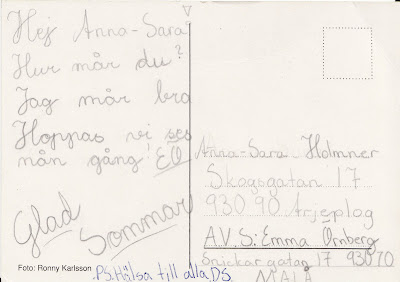 Hej Anna-Sara!
Hur mår du?
Jag mår bra
Hoppas vi ses
nån gång!
Glad
Sommar
Foto: Ronny Karlsson
P.S. Hälsa till alla. D.S.
Anna-Sara Holmner
Skogsgatan 17
930 90 Arjeplog
A.V.S: Emma Örnberg
Snickargatan 17 930 70
MALÅ